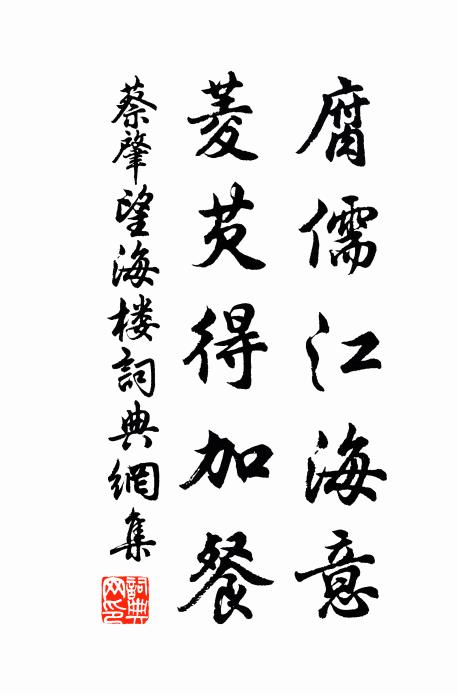 腐儒江海意
菱芡得加餐
蔡肇望海楼詞典網集
詞典網印